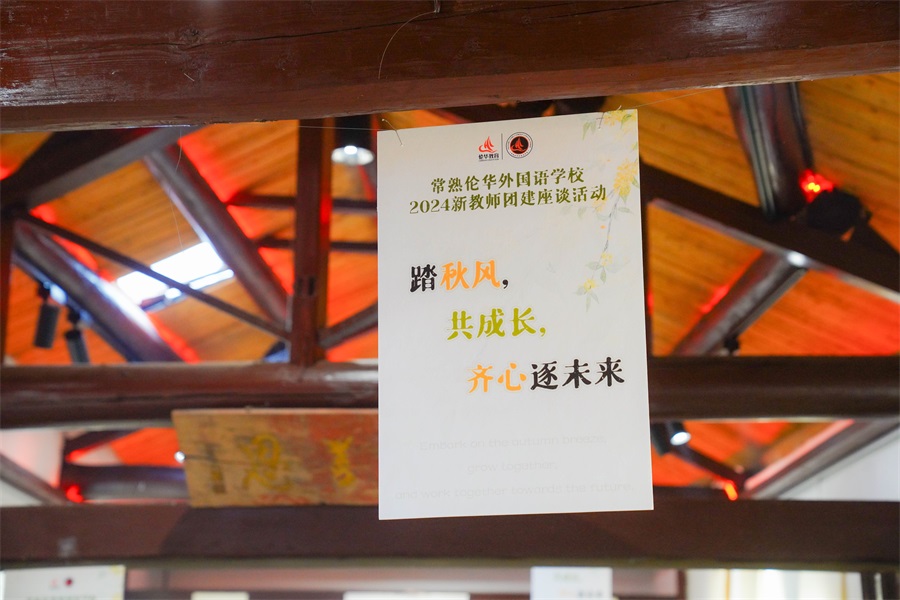 伦华教育
常熟伦华外国语学校
2024新教师团建座谈活动
踏秋风，
共成长，
齐心逐未来
Embark on the autumn breeze,
grow together,
and work together towards the future.